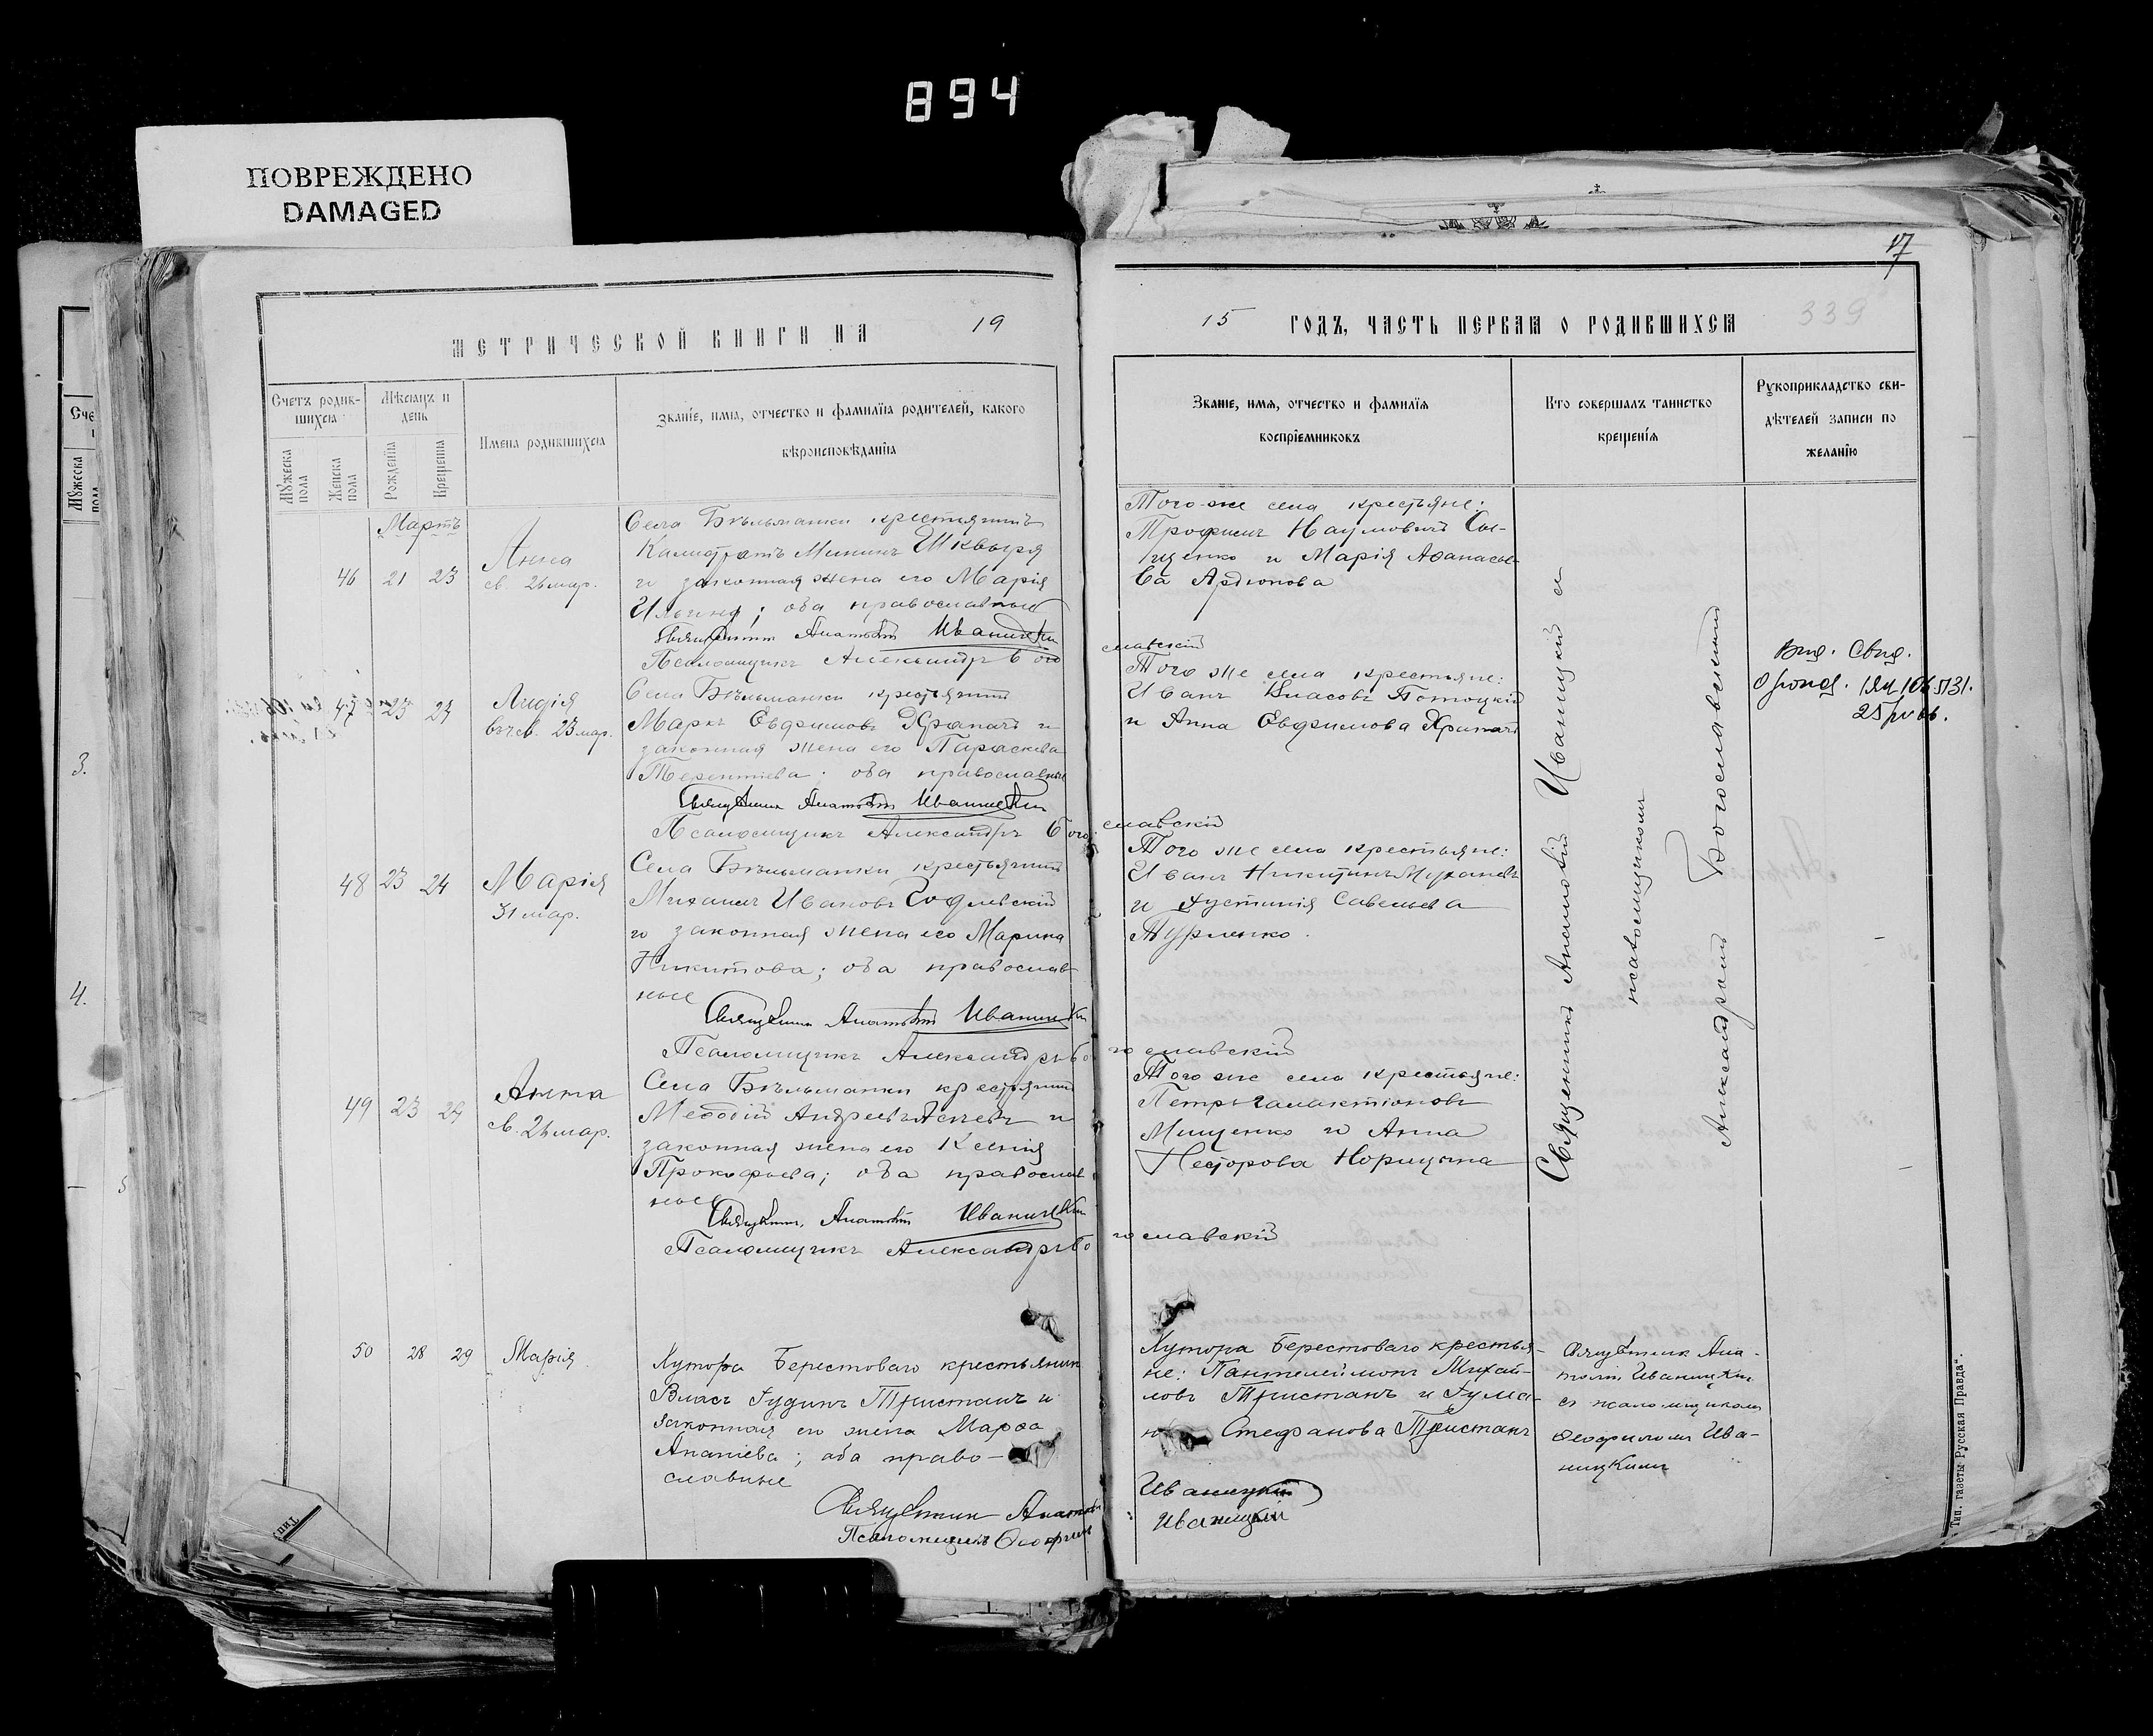 894
ПОВРЕЖДЕНО
DAMAGED
17
МЕТРИЧЕСКОЙ КНИГИ НА 19
15 ГОДЪ, ЧАСТЬ ПЕРВАЯ О РОДИВШИХСЯ
339
Счетъ родив-
шихся
Мужеска пола
Женска пола
Мѣсяцъ и
день
Рожденїя
Крещенїя
Имена родившихся
Званїе, имя, отчество и фамилїя родителей, какого
вѣроисповѣданїя
Званїе, имя, отчество и фамилїя
воспрїемниковъ
Кто совершалъ таинство
крещенїя
Рукоприкладство сви-
дѣтелей записи по
желанїю
Мартъ
46 21 23
Анна
св. 26 мар.
Села Бѣльманки крестьянинъ
Калистратъ Мининъ Шквыря
и законная жена его Марія
Ильина; оба православные
Священникъ Анатолій Иваницкій
Псаломщикъ Александръ Бого
славскій
Того-же села крестьяне:
Трофимъ Наумовичъ
и Марія Аѳанасье-
ва
47 23 24
Лидія
23 мар.
Села Бѣльманки крестьянинъ
Маркъ Евфимовъ Храпачъ и
законная жена его Параскева
Терентіева; оба православные
Священникъ Анатолій Иваницкій
Псаломщикъ Александръ Бого
славскій
Того же села крестьяне:
Иванъ Власовъ Потоцкій
и Анна Евфимова Храпачъ
Выд. Свид.
25
48 23 24
Марія
31 мар.
Села Бѣльманки крестьянинъ
Михаилъ Ивановъ
и законная жена его Марина
Никитова; оба православ
ные
Священникъ Анатолій Иваницкій
Псаломщикъ Александръ Бо
гославскій
Того же села крестьяне:
Иванъ Никитинъ
и Іустинія Савельева
49 23 24
Анна
св. 26 мар.
Села Бѣльманки крестьянинъ
Меѳодій Андреевъ и
законная жена его Ксенія
Прокофьева; оба православ
ные
Священникъ Анатолій Иваницкій
Псаломщикъ Александръ Бо
гославскій
Того же села крестьяне:
Петръ Галактіоновъ
Мищенко и Анна
Несторова Норицына
Священникъ Анатолій Иваницкій съ
псаломщикомъ
Александромъ Богославскимъ
50 28 29
Марія
Хутора Берестоваго крестьянинъ
Власъ Іудинъ Тристанъ и
законная его жена Марѳа
Ананіева; оба право-
славные
Священникъ Анатолій
Псаломщикъ Ѳеофилъ
Иваницкій
Иваницкій
Хутора Берестоваго крестья-
не: Пантелеймонъ Михай-
ловъ Тристанъ и
Стефанова Тристанъ
Священникъ Ана-
толій Иваницкій
съ псаломщикомъ
Ѳеофиломъ Ива-
ницкимъ
Тип. газеты „Русская Правда“.
3.
4.